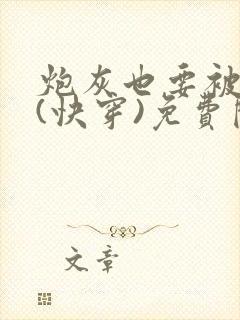 炮灰也要被
(快穿)免費
文章